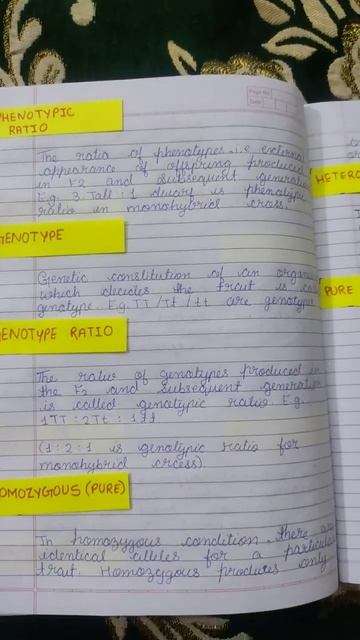 Page No.
Date
PHENOTYPIC
RATIO
The ratio of phenotypes i.e external
appearance of offspring produced
in F2 and subsequent generation
E.g. 3 Tall : 1 dwarf is phenotypic
ratio in monohybrid cross.
GENOTYPE
Genetic constitution of an organism
which decides the trait is
genotype E.g. TT / Tt / tt are genotype
GENOTYPE RATIO
The ratio of genotypes produced in
the F2 and subsequent generation
is called genotypic ratio E.g.
1TT : 2Tt : 1tt
(1 : 2 : 1 is genotypic ratio for
monohybrid cross)
HOMOZYGOUS (PURE)
In homozygous condition, there are
identical alleles for a particular
trait. Homozygous produces only
HETERO
PURE